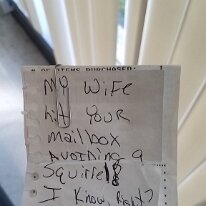 # OF ITEMS PURCHASED:
MY WIFE
hit YOUR
mailbox
AVOIDING A
SQUIRREL
I KNOW, RIGHT?